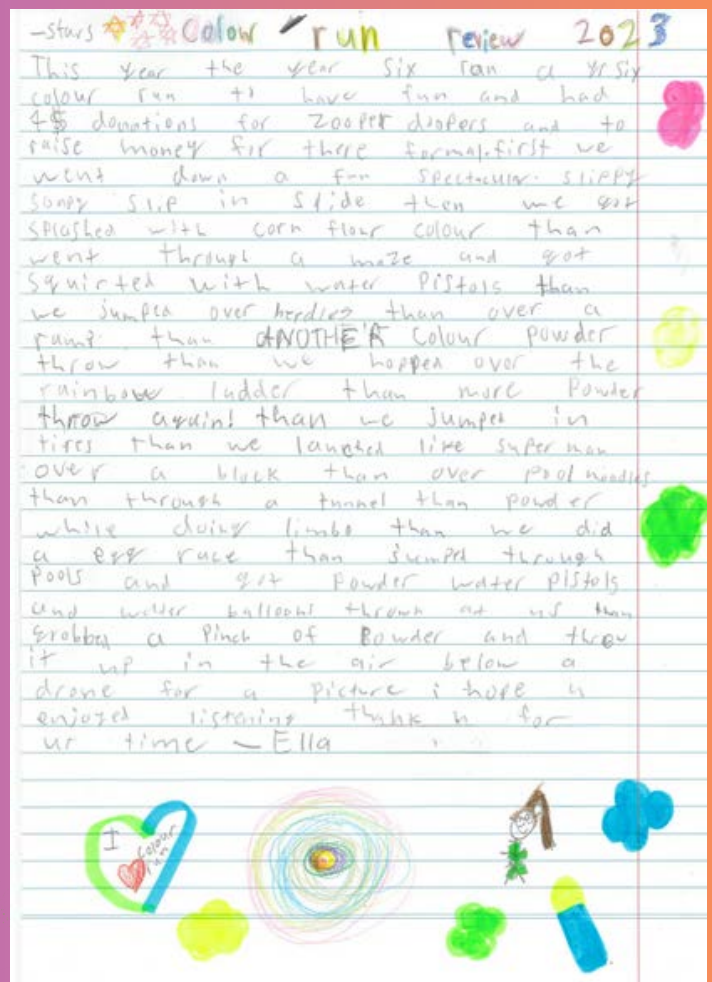 -stars Colour run review 2023
This year the year six ran a yr six
colour run to have fun and had
4$ donations for zooper doopers and to
raise money for there formal. first we
went down a fun spectacular slippy
soapy slip in slide then we got
splashed with corn flour colour than
went through a maze and got
squirted with water pistols than
we jumped over herdles than over a
ramp than ANOTHER colour powder
throw than we hopped over the
rainbow ladder than more powder
throw again! than we jumped in
tires than we launched like super man
over a block than over pool noodles
than through a tunnel than powder
while doing limbo than we did
a egg race than jumped through
pools and got powder water pistols
and water balloons thrown at us than
grobbed a pinch of powder and throw
it up in the air below a
drone for a picture i hope u
enjoyed listening thank u for
ur time - Ella
I
colour
run